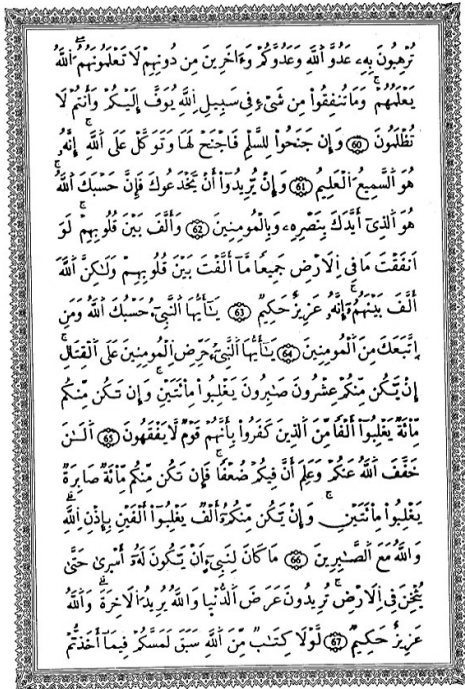 تُرْهِبُونَ بِهِۦ عَدُوَّ اَللَّهِ وَعَدُوَّكُمْ وَءَاخَرِينَ مِن دُونِهِمْ لَا تَعْلَمُونَهُمُ اُللَّهُ
يَعْلَمُهُمْ وَمَا تُنفِقُواْ مِن شَيْءٍ فِي سَبِيلِ اِللَّهِ يُوَفَّ إِلَيْكُمْ وَأَنتُمْ لَا
تُظْلَمُونَ 60 وَإِن جَنَحُواْ لِلسَّلْمِ فَاجْنَحْ لَهَا وَتَوَكَّلْ عَلَى اَللَّهِ إِنَّهُۥ
هُوَ اَلسَّمِيعُ اُلْعَلِيمُ 61 وَإِنْ يُّرِيدُوٓاْ أَنْ يَّخْدَعُوكَ فَإِنَّ حَسْبَكَ اَللَّهُ
هُوَ اَلَّذِىٓ أَيَّدَكَ بِنَصْرِهِۦ وَبِالْمُومِنِينَ 62 وَأَلَّفَ بَيْنَ قُلُوبِهِمْ لَوَ
اَنفَقْتَ مَا فِى اِلَارْضِ جَمِيعًا مَّآ أَلَّفْتَ بَيْنَ قُلُوبِهِمْ وَلَٰكِنَّ اَللَّهَ
أَلَّفَ بَيْنَهُمُۥٓ إِنَّهُۥ عَزِيزٌ حَكِيمٌ 63 يَٰٓأَيُّهَا اَلنَّبِىٓءُ حَسْبُكَ اَللَّهُ وَمَنِ
اِتَّبَعَكَ مِنَ اَلْمُومِنِينَ 64 يَٰٓأَيُّهَا اَلنَّبِىٓءُ حَرِّضِ اِلْمُومِنِينَ عَلَى اَلْقِتَالِ
إِنْ يَّكُن مِّنكُمْ عِشْرُونَ صَٰبِرُونَ يَغْلِبُواْ مِاْئَتَيْنِ وَإِن تَكُن مِّنكُم
مِّاْئَةٌ يَغْلِبُوٓاْ أَلْفًا مِّنَ اَلَّذِينَ كَفَرُواْ بِأَنَّهُمْ قَوْمٌ لَّا يَفْقَهُونَ 65 اَلَٰنَ
خَفَّفَ اَللَّهُ عَنكُمْ وَعَلِمَ أَنَّ فِيكُمْ ضُعْفًا فَإِن تَكُن مِّنكُم مِّاْئَةٌ صَابِرَةٌ
يَغْلِبُواْ مِاْئَتَيْنِ وَإِنْ يَّكُن مِّنكُمُۥٓ أَلْفٌ يَغْلِبُوٓاْ أَلْفَيْنِ بِإِذْنِ اِللَّهِ
وَاللَّهُ مَعَ اَلصَّٰبِرِينَ 66 مَا كَانَ لِنَبِىٓءٍ اَنْ يَّكُونَ لَهُۥٓ أَسْرَىٰ حَتَّىٰ
يُثْخِنَ فِى اِلَارْضِ تُرِيدُونَ عَرَضَ اَلدُّنْيَا وَاللَّهُ يُرِيدُ اُلَاخِرَةَ وَاللَّهُ
عَزِيزٌ حَكِيمٌ 67 لَّوْلَا كِتَٰبٌ مِّنَ اَللَّهِ سَبَقَ لَمَسَّكُمْ فِيمَآ أَخَذتُّمْ